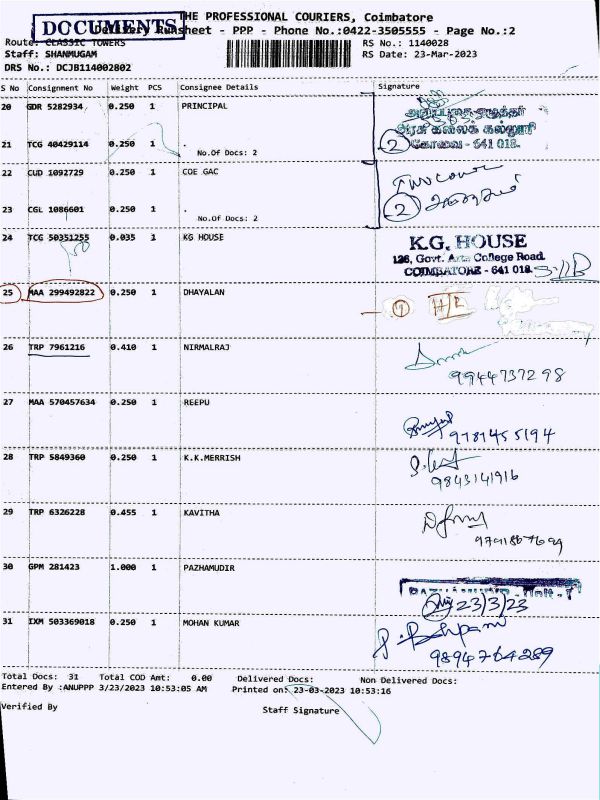 THE PROFESSIONAL COURIERS, Coimbatore
DOCUMENTS
Delivery Runsheet - PPP - Phone No.:0422-3505555 - Page No.:2
Route: CLASSIC TOWERS RS No.: 1140028
Staff: SHANMUGAM RS Date: 23-Mar-2023
DRS No.: DCJB114002802
S No Consignment No Weight PCS Consignee Details Signature
20 GDR 5282934 0.250 1 PRINCIPAL
அரசு கலைக் கல்லூரி
21 TCG 40429114 0.250 1 . 2 கோவை - 641 018.
No.Of Docs: 2
22 CUD 1092729 0.250 1 COE GAC
23 CGL 1086601 0.250 1 . 2
No.Of Docs: 2
24 TCG 50351255 0.035 1 KG HOUSE K.G. HOUSE
126, Govt. Arts College Road.
COIMBATORE - 641 018.
25 MAA 299492822 0.250 1 DHAYALAN
26 TRP 7961216 0.410 1 NIRMALRAJ
9944737298
27 MAA 570457634 0.250 1 REEPU
9787455194
28 TRP 5849360 0.250 1 K.K.MERRISH
9843141916
29 TRP 6326228 0.455 1 KAVITHA
30 GPM 281423 1.000 1 PAZHAMUDIR
23/3/23
31 IXM 503369018 0.250 1 MOHAN KUMAR
9894764289
Total Docs: 31 Total COD Amt: 0.00 Delivered Docs: Non Delivered Docs:
Entered By :ANUPPP 3/23/2023 10:53:05 AM Printed on: 23-03-2023 10:53:16
Verified By Staff Signature